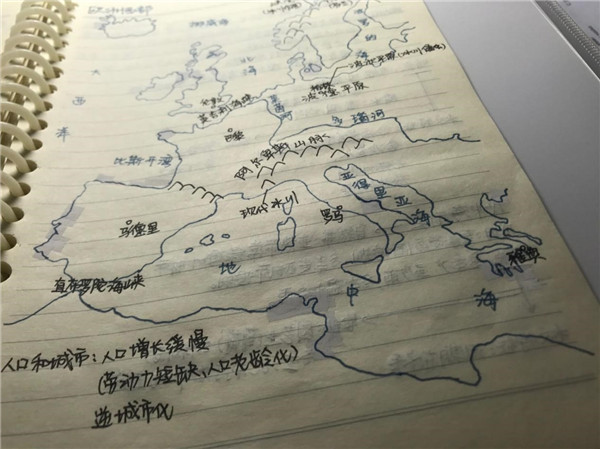 欧洲西部
挪威海
大
西
洋
北
海
波罗的海
波德平原(冰川侵蚀)
伦敦
英吉利海峡
莱茵河
柏林
波德平原
巴黎
多瑙河
比斯开湾
阿尔卑斯山脉
现代冰川
亚得里亚海
马德里
罗马
雅典
直布罗陀海峡
地
中
海
人口和城市:人口增长缓慢
(劳动力短缺、人口老龄化)
逆城市化